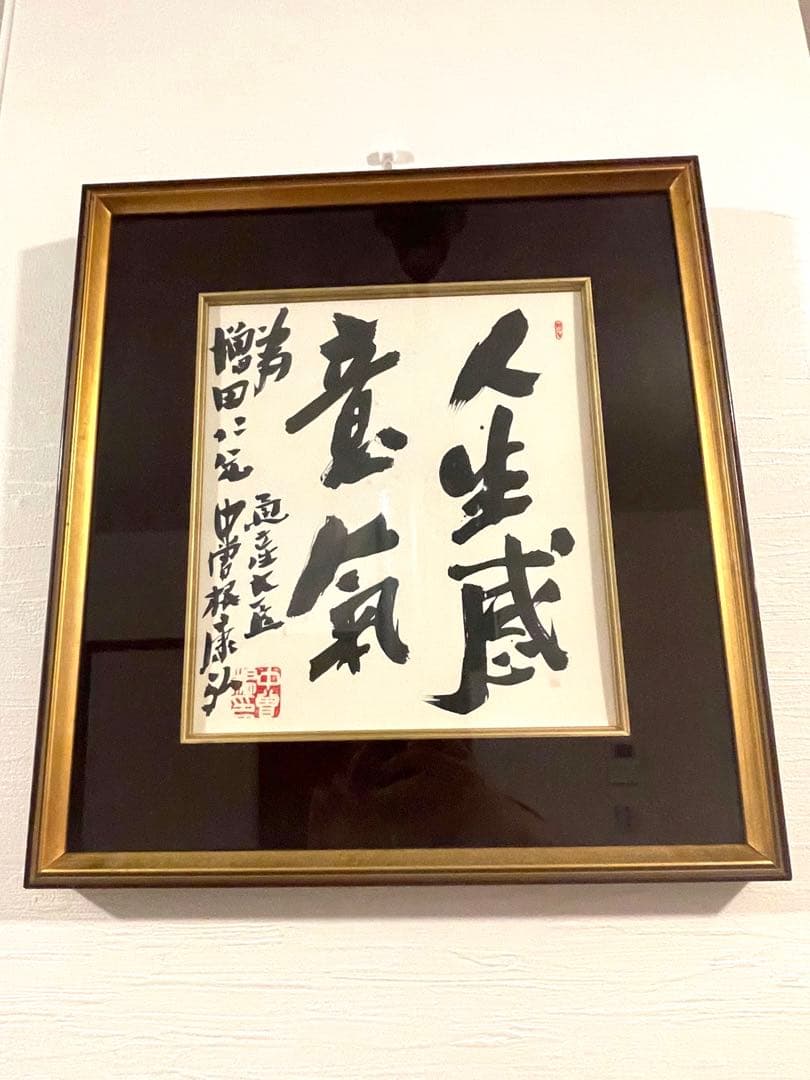 人生感
意氣
為
増田仁兄
通産大臣
中曽根康弘